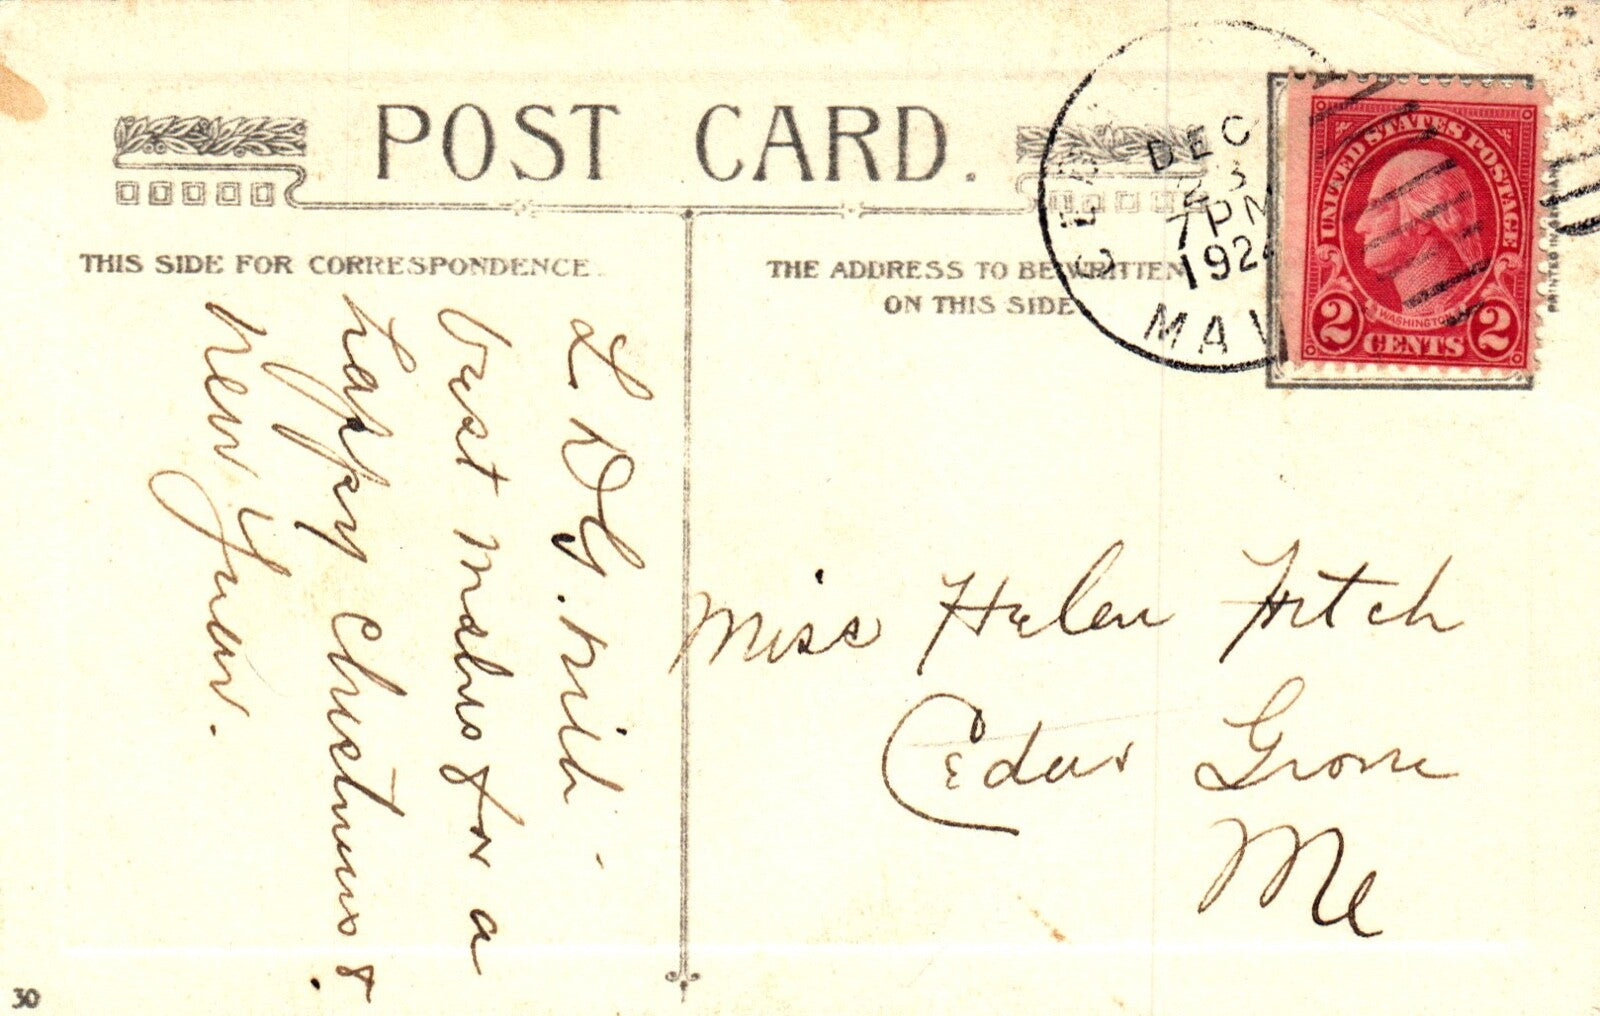 POST CARD.
THIS SIDE FOR CORRESPONDENCE.
THE ADDRESS TO BE WRITTEN
ON THIS SIDE
DEC
23
7 PM
192
UNITED STATES POSTAGE
WASHINGTON
2 CENTS 2
PRINTED IN GERMANY
best wishes for a
happy Christmas &
New Year.
Miss Helen Fitch
Cedar Grove
Me
30